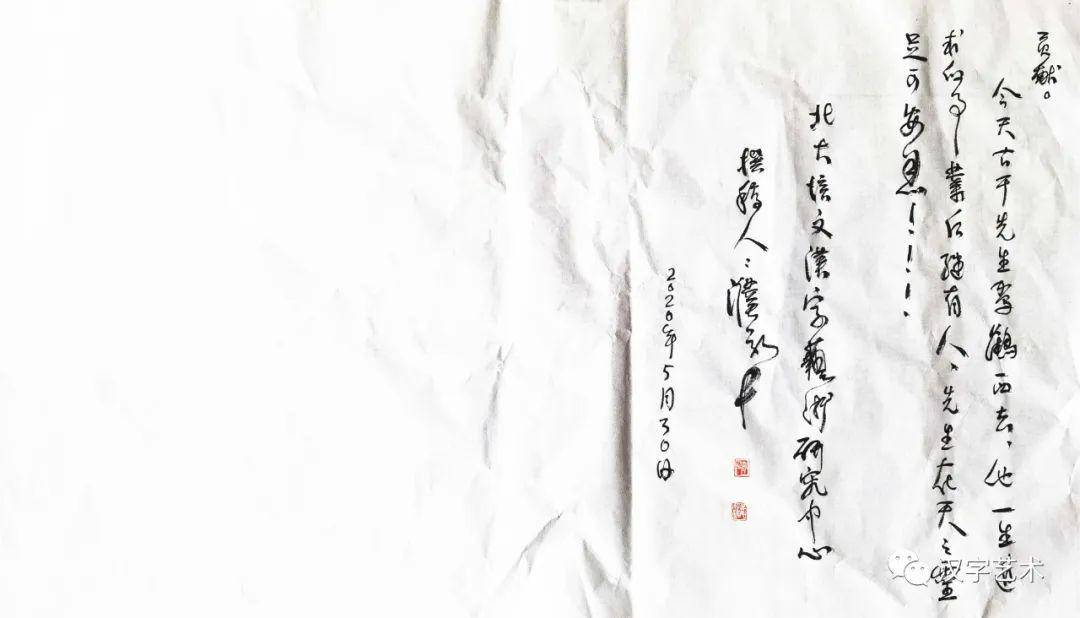 贡献。
今天古干先生驾鹤西去,他一生追
求的事业后继有人,先生在天之灵
足可安息!!!!
北大培文汉字藝术研究中心
撰稿人:濮
2020年5月30日
汉字艺术